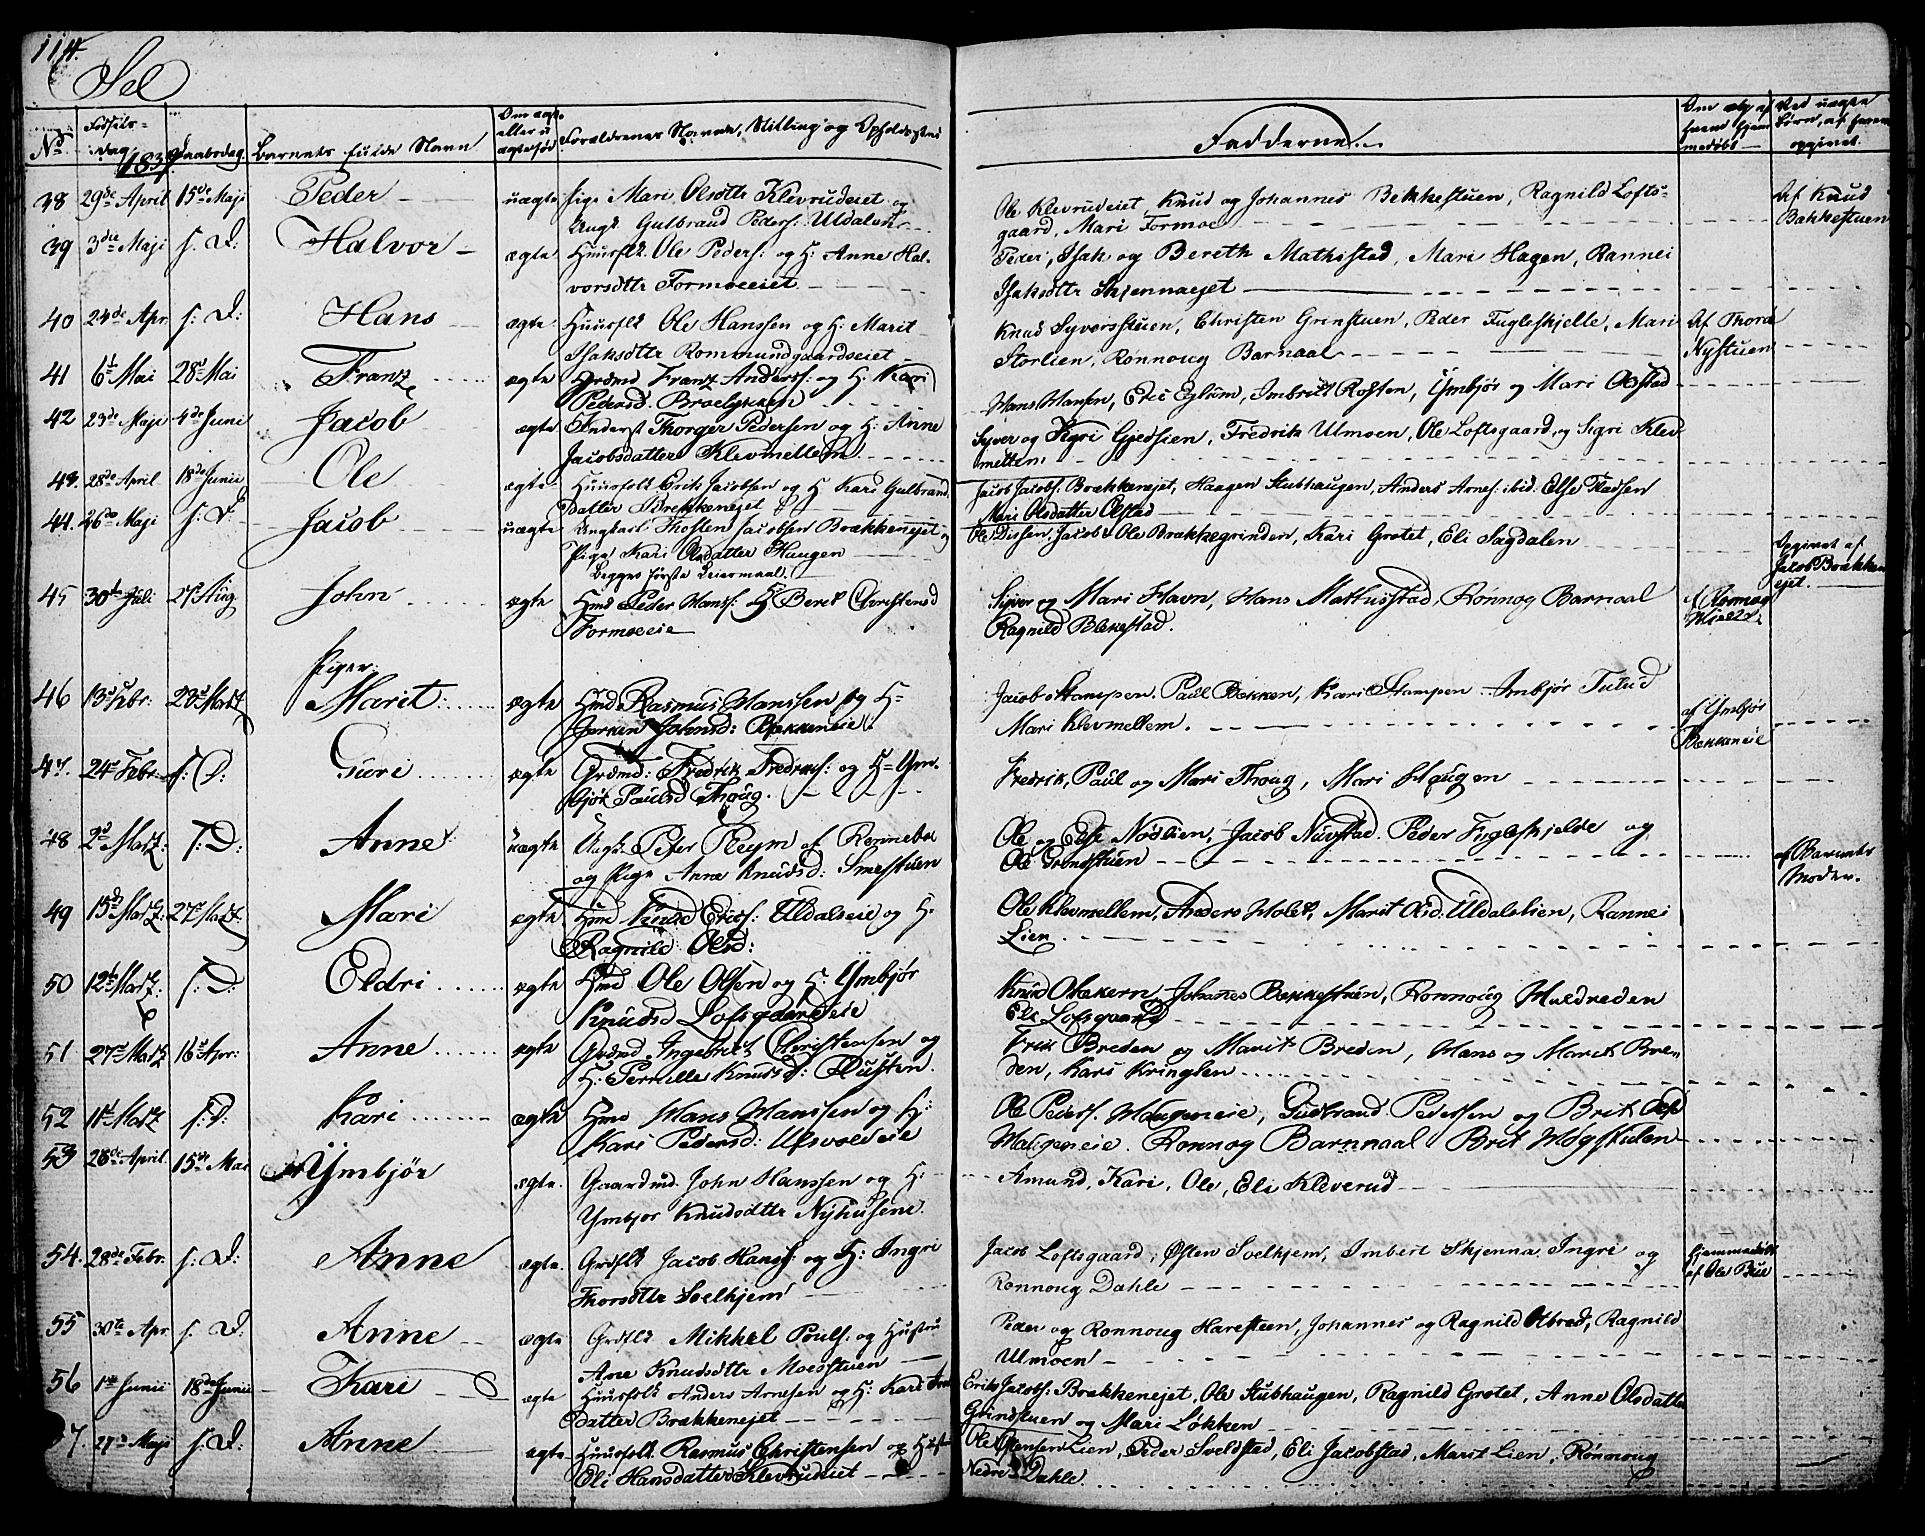 114.
Sel
No
Fødsels-
dag
1837
Daabsdag
Barnets fulde Navn
Om ægte
eller u
ægtefød
Forældrenes Navne, Stilling og Opholdssted
Fadderne.
Om
fremd hjem
medøbt
Ved uægte
Børn, af hvem
opgivet.
38 29de April 15de Maji Peder uægte Pige Mari Olsdttr Klevrudeiet og
Ungk Gulbrand Peders: Uldalen
Ole Klevrudeiet, Knud og Johannes Bekkestuen, Ragnild Lofts-
gaard, Mari Formoe
Af Knud
Bakkestuen
39 3die Maji s. D: Halvor ægte Huusflk Ole Peders: og H: Anne Hal-
vorsdttr Formoeeiet
Peder, Isak og Bereth Mathistad, Mari Hagen, Rannei
Isaksdttr Skjennaejet
40 24de Apr. s. D: Hans ægte Huusflk Ole Hanssen og H: Marit
Isaksdttr Rommundgaardseiet
Knud Syversstuen, Christen Grinstuen, Peder Fugleskjelle, Mari
Storlien, Rønnoug Barnaal
Af Thord
Nystuen
41 6t Mai 28d Mai Franz ægte Grdmd Franz Anderss: og H: Kari
Pedersd. Braelykken
Hans Hansen, Eric Eglum, Imbrikt Rosten, Ymbjør og Mari Olstad
42 23de Maji 4de Juni Jacob ægte Inderst Thorger Pedersen og H: Anne
Jacobsdatter Klevmellem
Syver og Sigri Gjedsien, Fredrik Ulmoen, Ole Loftsgaard, og Sigri Klev
metten.
43. 28de April 18de Junii Ole ægte Huusfolk Erik Jacobsen og H Kari Gulbrand
datter Brekkenejet
Jacob Jacobs: Brækkenejet, Haagen Stubhaugen, Anders Arnes: ibid: Else Fladsen
Mari Olsdatter Olstad
44. 26de Maji s. D. Jacob uægte Ungkarl Thosten Jacobsen Brækkenejet og
Pige Kari Olsdatter Haugen
Begges første Leiermaal.
Ole Dissen, Jacob & Ole Brækkegrinden, Kari Grotet, Eli Sagdalen
Opgivet af
Jacob Brækken
ejet.
45 30te Juli 27d Aug. John ægte Hmd Peder Hanss: & H Beret Christensd
Formoeeie
Syver og Mari Havn, Hans Mathisstad, Ronnog Barnaal
Ragnild Blekestad.
Piger:
46 13d Febr. 23d Martz Marit ægte Hmd Rasmus Hanssen og H=
Jorken Johnsd: Bekkeneie
Jacob Stampen. Paul Bekken, Kari Stampen. Imbjør Tulud
Mari Klevmellem.
af Ymbjør
Bekkeneie
47. 24d Febr. s: D: Guri ægte Grdmd: Fredrik Fredriks: og H= Ym-
bjør Paulsd Thoug.
Fredrik, Paul og Mari Thoug, Mari Haugen
48 2d Martz s: D: Anne uægte Ungk. Peter Reym af Rennebo
og Pige Anne Knudsd: Smestuen
Ole og Else Nordlien, Jacob Nustad. Peder Fugleskjelde og
Ole Grindstuen
af Barnets
Moder.
49 15d Martz 27d Martz Mari ægte Hmd Knud Erics: Uldalseie og H:
Ragnild Olsd:
Ole Klevmellem, Anders Holet, Marit Olsd. Uldalslien, Rannei
Lien
50 12t Martz s: D: Eldri ægte Hmd Ole Olsen og H: Ymbjør
Knudsd Lofsgaardeie
Knud Olekern Johannes Bekkestuen, Ronnoug Muldreden
Eli Lofsgaard
51 27d Martz 16d Apr: Anne ægte Grdmd Ingebrikt Christensen og
H: Pernille Knudsd: Rusten.
Erik Breden og Marit Breden, Hans og Marit Bre-
den, Kari Kringlen
52 11t Martz s: D: Kari ægte Hmd Hans Hanssen og H:
Kari Pedersd: Ulsvoldeie
Ole Peders. Haugeneie, Gudbrand Pederssen og Brit Olsd
Haugeneie. Ronnog Barnnaal Brit Høgstulen
53 28de April 15de Mai Ymbjør ægte. Gaardmd. John Hanssen og H.
Ymbjør Knudsdttr Nyhusene.
Amund, Kari, Ole, Eli Kleverud
54. 28de Febr. s. D: Anne ægte. Grdflk Jacob Hanss: og H: Ingri
Thorsdttr Solhjem
Jacob Loftsgaard, Østen Solhjem, Imbert Skjenna, Ingri og
Ronnoug Dahle
hjemmedøbt
af Ole Bue
55 30te Apr. s. D. Anne ægte Grdflk Mikkel Pouls. og Hustru
Ane Knudsdttr Moesstuen
Peder og Ronnoug Harestuen, Johannes og Ragnild Olbred, Ragnild
Ulmoen
56 1ste Junii 18de Junii Kari ægte Huusfolk Anders Arnesen og H: Kari
datter Brækkenejet
Erik Jacobs: Brækkenejet, Ole Stubhaugen, Ragnild Grotet, Anne Olsdatter
Grindstuen og Mari Løkken
57 27de Maji s. D. Anne ægte Huusfolk Rasmus Christensen og Hust
Eli Hansdatter Klevrudeiet
Ole Ostensen Lien, Peder Sveldstad, Eli Jacobstad, Marit Lien, Rønnoug
Nedre Dahle.